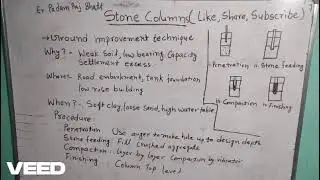 Er Padam Raj Bhatt
Stone Columns (Like, Share, Subscribe)
→ Ground improvement technique
Why? - Weak Soil, low bearing Capacity
Settlement excess.
Where- Road embankment, tank foundation
low rise building
When? - Soft clay, loose sand, high water table
Procedure:
Penetration Use auger to make hole up to design depth
Stone feeding: Fill crushed aggregate
Compaction: layer by layer Compaction by vibrator
Finishing Column top level
i. Penetration
ii. Stone feeding
iii. Compaction
iv. Finishing
VEED